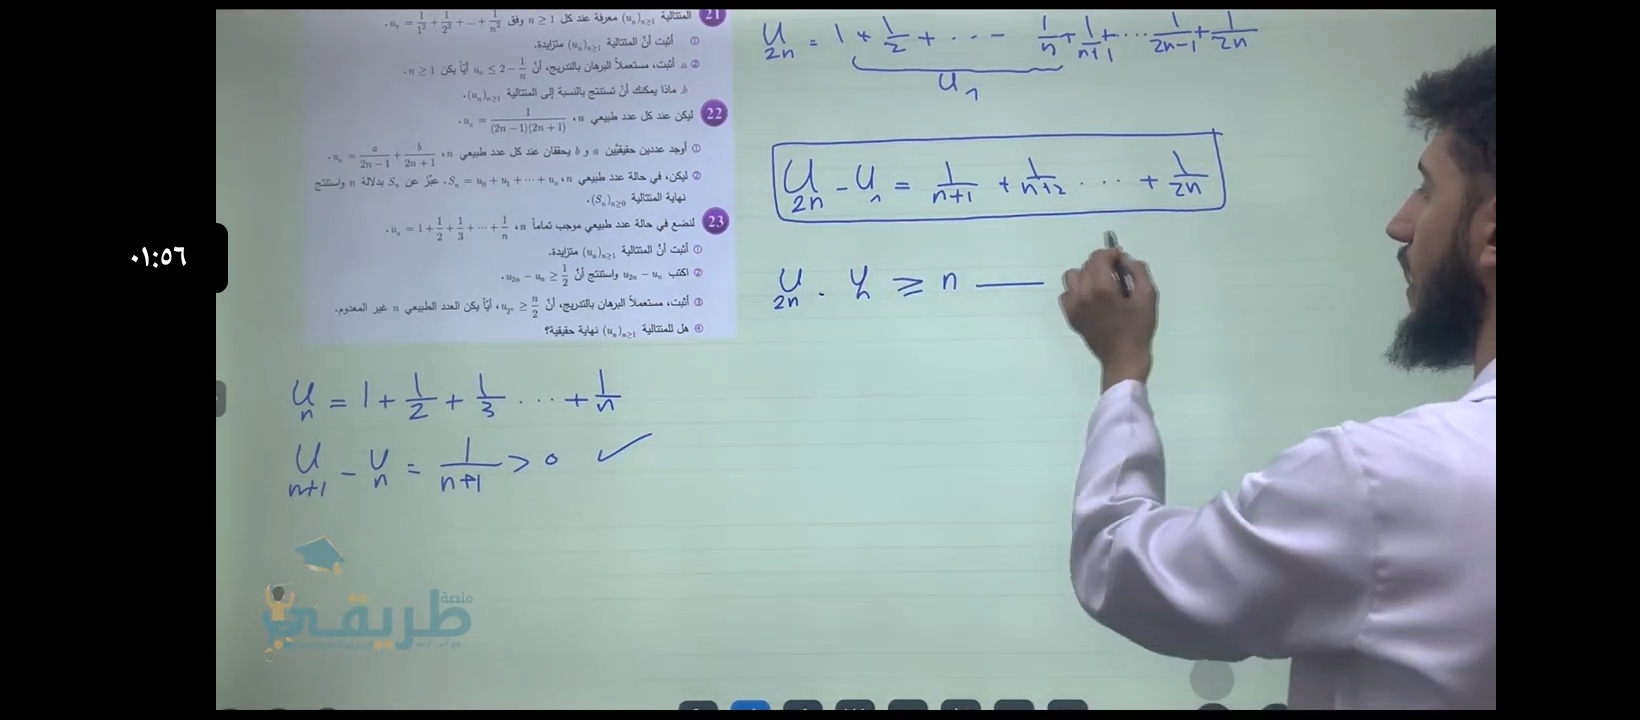 21 المتتالية (uₙ)ₙ≥₁ معرفة عند كل n ≥ 1 وفق uₙ = 1/1² + 1/2² + ... + 1/n² .
① أثبت أنّ المتتالية (uₙ)ₙ≥₁ متزايدة.
② a. أثبت، مستعملاً البرهان بالتدريج، أنّ uₙ ≤ 2 − 1/n أيّاً يكن n ≥ 1 .
b. ماذا يمكنك أنْ تستنتج بالنسبة إلى المتتالية (uₙ)ₙ≥₁ .
22 ليكن عند كل عدد طبيعي n ، uₙ = 1/((2n − 1)(2n + 1)) .
① أوجد عددين حقيقيّين a و b يحققان عند كل عدد طبيعي n ، uₙ = a/(2n − 1) + b/(2n + 1) .
② ليكن، في حالة عدد طبيعي n ، Sₙ = u₀ + u₁ + ··· + uₙ . عبّر عن Sₙ بدلالة n واستنتج
نهاية المتتالية (Sₙ)ₙ≥₀ .
23 لنضع في حالة عدد طبيعي موجب تماماً n ، uₙ = 1 + 1/2 + 1/3 + ··· + 1/n .
① أثبت أنّ المتتالية (uₙ)ₙ≥₁ متزايدة.
② اكتب u₂ₙ − uₙ واستنتج أنّ u₂ₙ − uₙ ≥ 1/2 .
③ أثبت، مستعملاً البرهان بالتدريج، أنّ u₂ⁿ ≥ n/2 ، أيّاً يكن العدد الطبيعي n غير المعدوم.
④ هل للمتتالية (uₙ)ₙ≥₁ نهاية حقيقية؟
٠١:٥٦
Uₙ = 1 + 1/2 + 1/3 ... + 1/n
Uₙ₊₁ − Uₙ = 1/(n+1) > 0 ✓
U₂ₙ = 1 + 1/2 + ... - 1/n + 1/(n+1) + ... 1/(2n−1) + 1/2n
Uₙ
U₂ₙ − Uₙ = 1/(n+1) + 1/(n+2) ... + 1/2n
U₂ₙ . Uₙ ≥ n —
منصة
طريقي